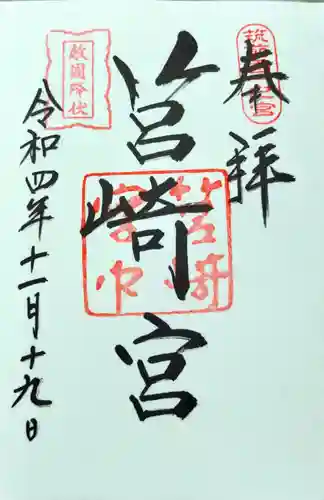 奉拝
筥崎宮
令和四年十一月十九日
敵國降伏